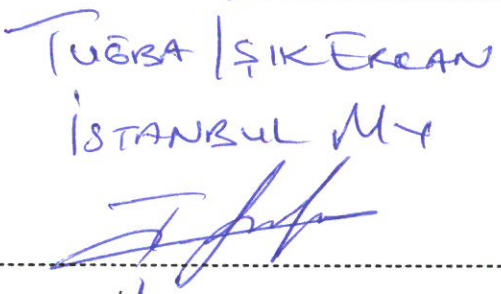 TUĞBA IŞIK ERCAN
İSTANBUL MY